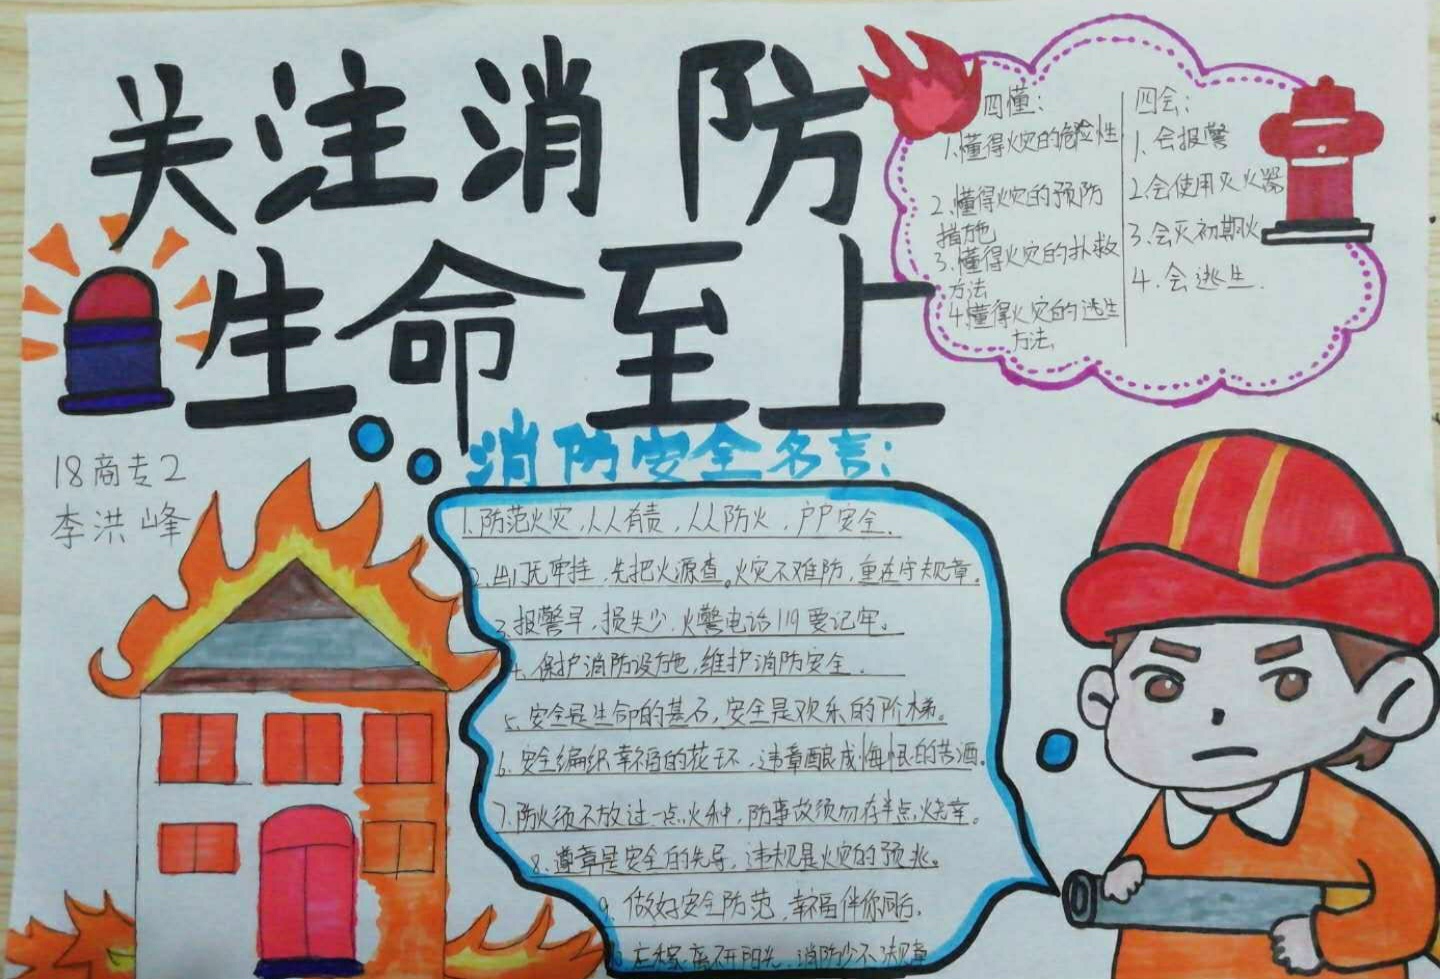 关注消防
生命至上
四懂：
1.懂得火灾的危险性
2.懂得火灾的预防
措施
3.懂得火灾的扑救
方法
4.懂得火灾的逃生
方法.
四会：
1.会报警
2.会使用灭火器
3.会灭初期火
4.会逃生.
18商专2
李洪峰
消防安全名言：
1.防范火灾,人人有责,人人防火,户户安全.
2.出门无牵挂,先把火源查。火灾不难防,重在守规章。
3.报警早,损失少,火警电话119要记牢。
4.保护消防设施,维护消防安全.
5.安全是生命的基石,安全是欢乐的阶梯。
6.安全编织幸福的花环,违章酿成悔恨的苦酒。
7.防火须不放过一点火种,防事故须勿存半点
8.遵章是安全的先导,违规是火灾的预兆。
9.做好安全防范,幸福伴你同行.
庄稼离不开阳光,消防少不了规章